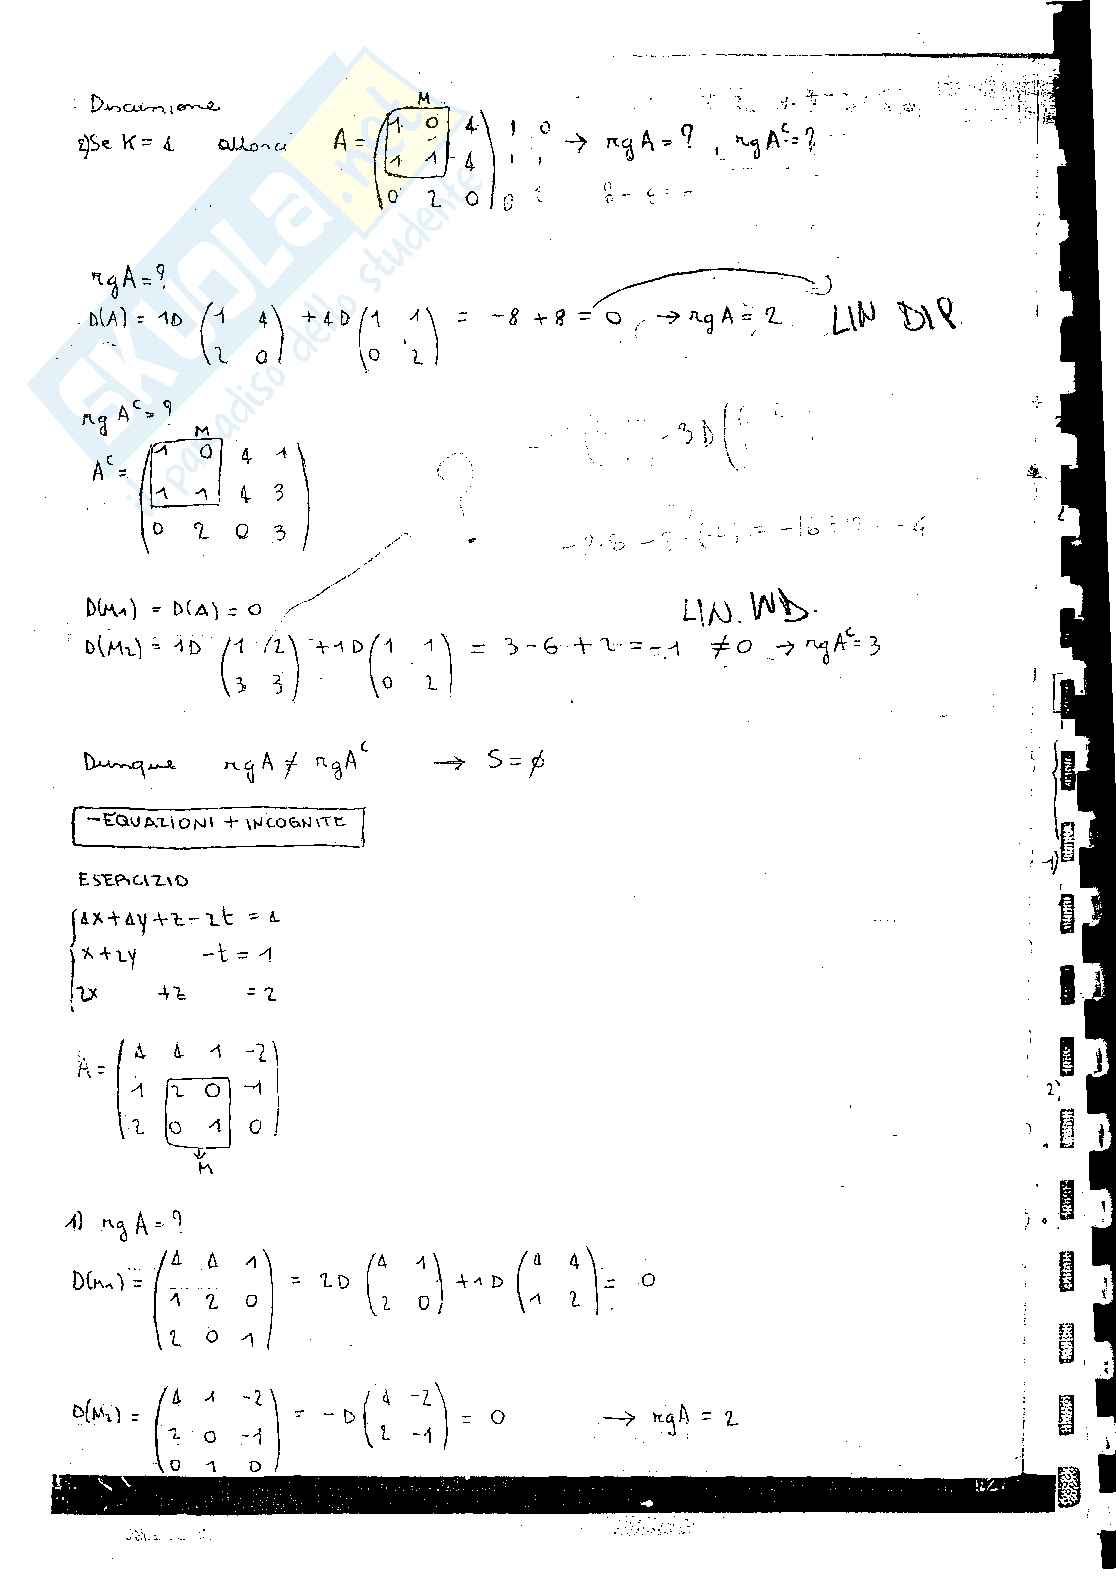 Discussione
2) Se K = 4 allora A = (1 0 4 / 1 1 4 / 0 2 0) → rg A = ? , rg Aᶜ = ?
M
rg A = ?
D(A) = 1D (1 4 / 2 0) + 4D (1 1 / 0 2) = -8 + 8 = 0 → rg A = 2 LIN DIP.
rg Aᶜ = ?
M
Aᶜ = (1 0 4 1 / 1 1 4 3 / 0 2 0 3)
?
- 3D
D(M1) = D(A) = 0
LIN. IND.
D(M2) = 1D (1 2 / 3 3) + 1D (1 1 / 0 2) = 3 - 6 + 2 = -1 ≠ 0 → rg Aᶜ = 3
Dunque rg A ≠ rg Aᶜ → S = ∅
- EQUAZIONI + INCOGNITE
ESERCIZIO
4x + 4y + z - 2t = 4
x + 2y - t = 1
2x + z = 2
A = (4 4 1 -2 / 1 2 0 -1 / 2 0 1 0)
M
1) rg A = ?
D(M1) = (4 4 1 / 1 2 0 / 2 0 1) = 2D (4 1 / 2 0) + 1D (4 4 / 1 2) = 0
D(M2) = (4 1 -2 / 2 0 -1 / 0 1 0) = -D (4 -2 / 2 -1) = 0 → rg A = 2
SKUOLA.net
il paradiso dello studente